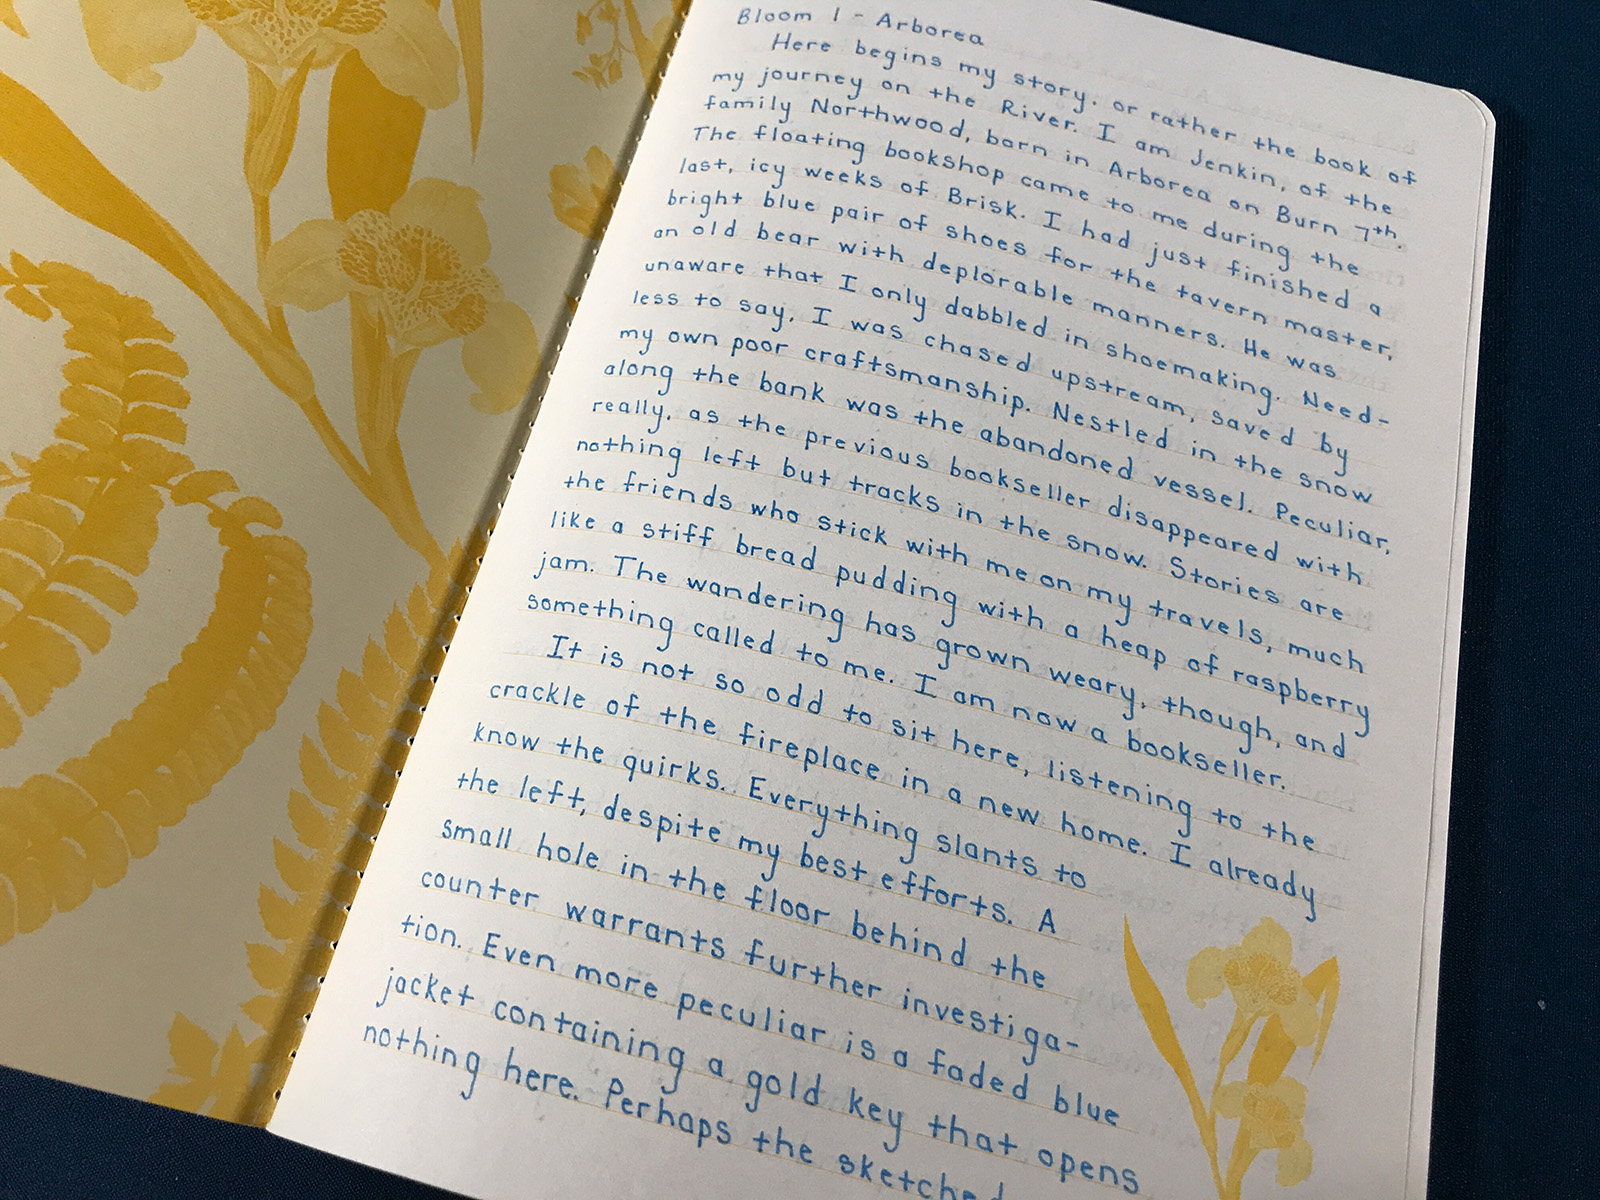 Bloom 1 - Arborea
Here begins my story. or rather the book of
my journey on the River. I am Jenkin, of the
family Northwood, born in Arborea on Burn 7th.
The floating bookshop came to me during the
last, icy weeks of Brisk. I had just finished a
bright blue pair of shoes for the tavern master,
an old bear with deplorable manners. He was
unaware that I only dabbled in shoemaking. Need-
less to say, I was chased upstream, saved by
my own poor craftsmanship. Nestled in the snow
along the bank was the abandoned vessel. Peculiar,
really, as the previous bookseller disappeared with
nothing left but tracks in the snow. Stories are
the friends who stick with me on my travels, much
like a stiff bread pudding with a heap of raspberry
jam. The wandering has grown weary, though, and
something called to me. I am now a bookseller.
It is not so odd to sit here, listening to the
crackle of the fireplace in a new home. I already
know the quirks. Everything slants to
the left, despite my best efforts. A
small hole in the floor behind the
counter warrants further investiga-
tion. Even more peculiar is a faded blue
jacket containing a gold key that opens
nothing here. Perhaps the sketched